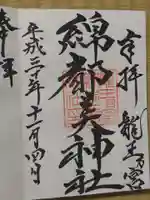 奉拝
龍王宮
綿都美神社
平成三十年十一月四日
奉拝